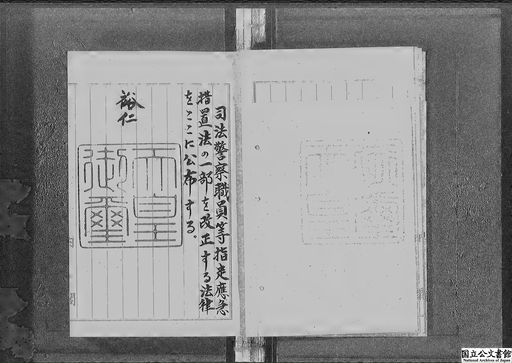 司法警察職員等指定應急
措置法の一部を改正する法律
をここに公布する。
裕仁
天皇
御璽
国立公文書館
National Archives of Japan